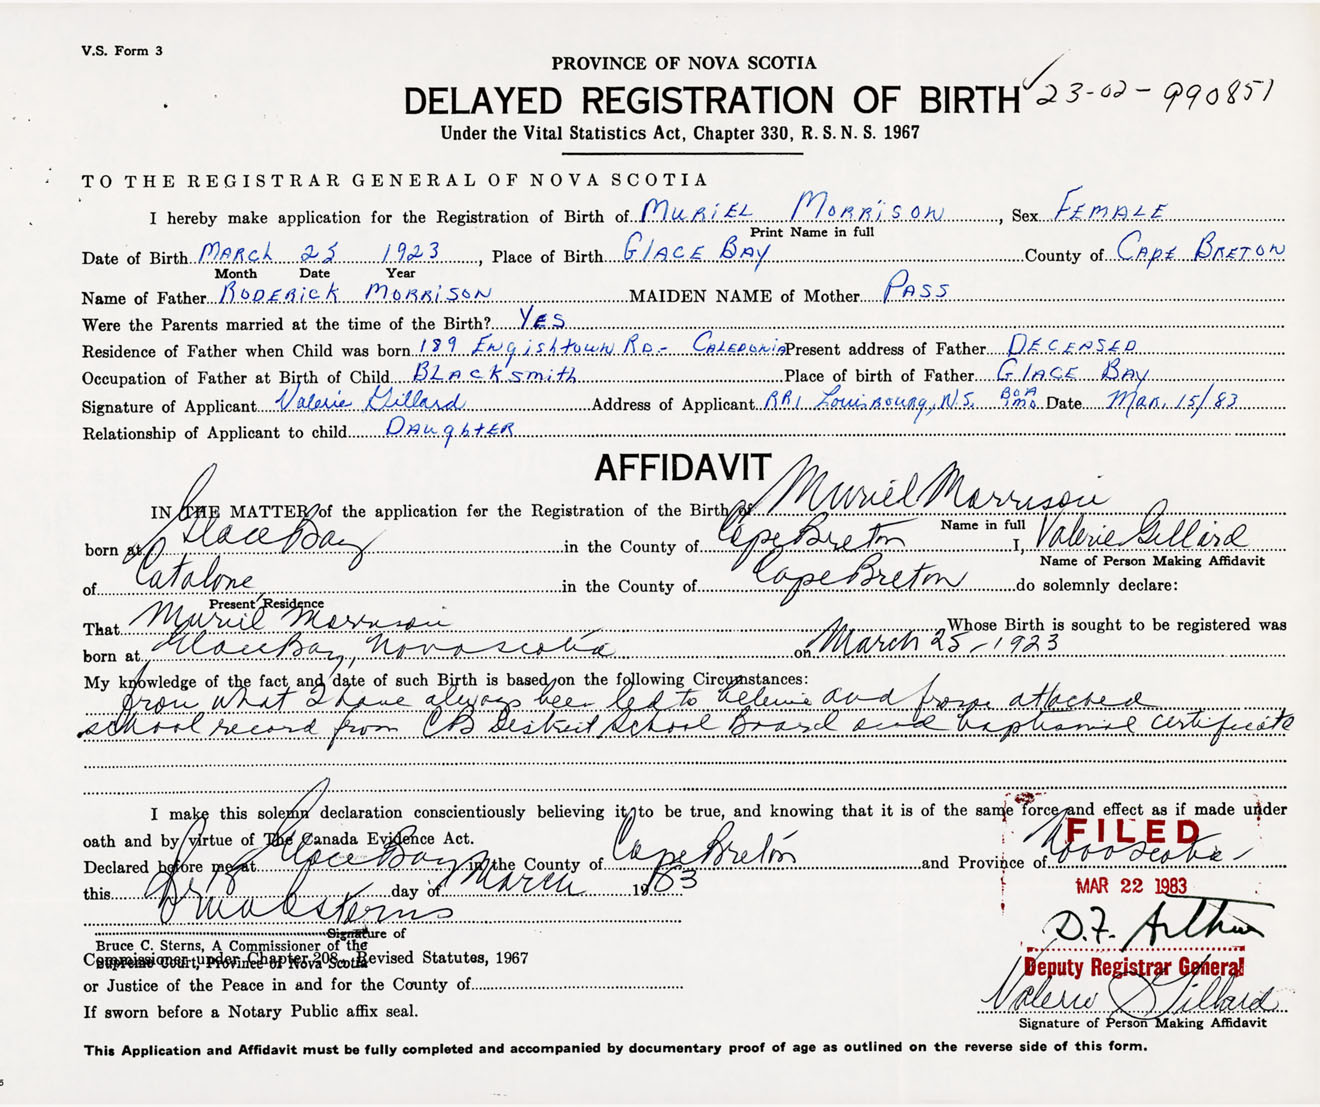 V.S. Form 3
PROVINCE OF NOVA SCOTIA
DELAYED REGISTRATION OF BIRTH 23-02-990851
Under the Vital Statistics Act, Chapter 330, R.S.N.S. 1967
TO THE REGISTRAR GENERAL OF NOVA SCOTIA
I hereby make application for the Registration of Birth of MURIEL MORRISON, Sex FEMALE
Print Name in full
Date of Birth MARCH 25 1923, Place of Birth GLACE BAY County of CAPE BRETON
Month Date Year
Name of Father RODERICK MORRISON MAIDEN NAME of Mother PASS
Were the Parents married at the time of the Birth? YES
Residence of Father when Child was born 189 ENGISHTOWN RD- CALEDONIA Present address of Father DECENSED
Occupation of Father at Birth of Child BLACKSMITH Place of birth of Father GLACE BAY
Signature of Applicant Valerie Gillard Address of Applicant RR1 LOUISBOURG, N.S. BOA 1MO Date MAR. 15/83
Relationship of Applicant to child DAUGHTER
AFFIDAVIT
IN THE MATTER of the application for the Registration of the Birth of Muriel Morrison
Name in full
born at Glace Bay in the County of Cape Breton I, Valerie Gillard
Name of Person Making Affidavit
of Catalone in the County of Cape Breton do solemnly declare:
Present Residence
That Muriel Morrison Whose Birth is sought to be registered was
born at Glace Bay, Nova Scotia on March 25-1923
My knowledge of the fact and date of such Birth is based on the following Circumstances:
from what I have always been led to believe and from attached
school record from CB District School Board and baptismal certificate
I make this solemn declaration conscientiously believing it to be true, and knowing that it is of the same force and effect as if made under
oath and by virtue of The Canada Evidence Act.
Declared before me at Glace Bay in the County of Cape Breton and Province of Nova Scotia
this day of March 1983
FILED
MAR 22 1983
D.F. Arthur
Deputy Registrar General
Signature of
Bruce C. Sterns, A Commissioner of the
Supreme Court, Province of Nova Scotia
Commissioner under Chapter 208, Revised Statutes, 1967
or Justice of the Peace in and for the County of
Valerie Gillard
If sworn before a Notary Public affix seal.
Signature of Person Making Affidavit
This Application and Affidavit must be fully completed and accompanied by documentary proof of age as outlined on the reverse side of this form.